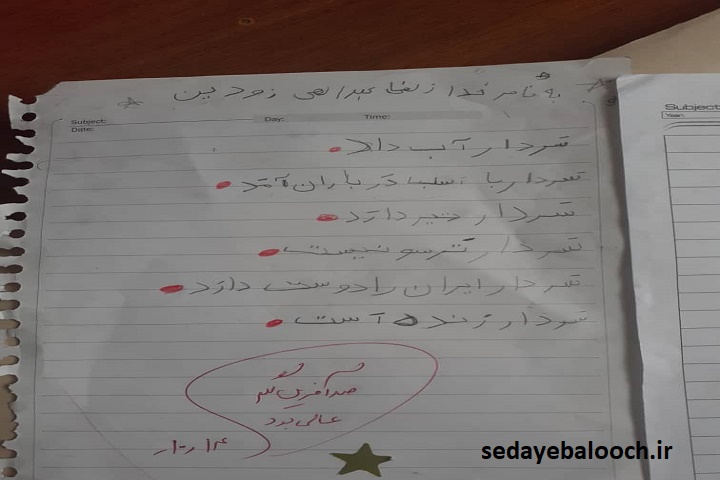 به نام خدا زلفا عبدالهی زودین
Subject:
Date:
Day:
Time:
سردار آب داد.
سردار با اسب در باران آمد.
سردار تیر دارد.
سردار ترسو نیست.
سردار ایران را دوست دارد.
سردار زنده است.
صد آفرین
عالی بود
Subject:
Year:
sedayebalooch.ir